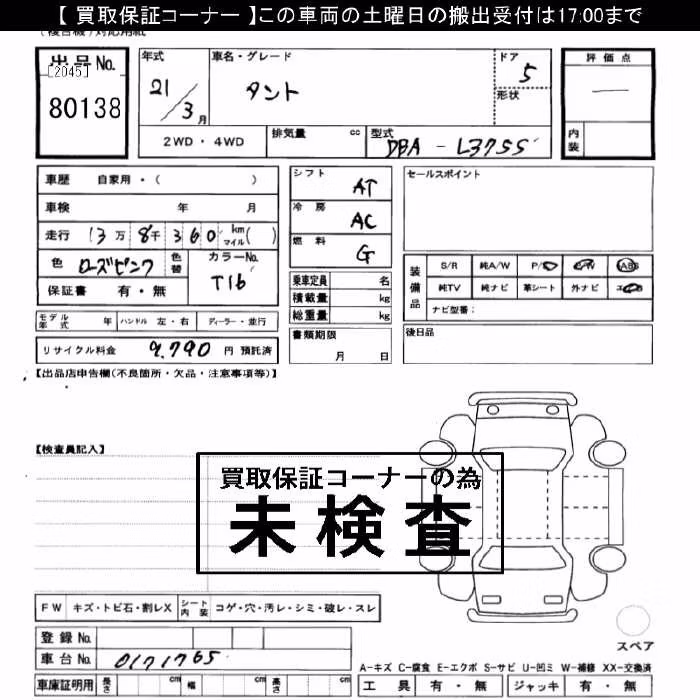 【 買取保証コーナー 】この車両の土曜日の搬出受付は17:00まで
(複合機)対応用紙
出品No.
[2045]
80138
年式
21/3月
車名・グレード
タント
ドア
5
形状
評価点
内装
2WD・4WD
排気量 cc
型式
DBA - L375S
車歴 自家用・( )
車検 年 月
走行 13万 8千 360 km マイル( )
色 ローズピンク 色替
カラーNo.
T16
保証書 有・無
モデル年式 年 ハンドル 左・右 ディーラー・並行
リサイクル料金 9,790 円 預託済
シフト AT
冷房 AC
燃料 G
乗車定員 名
積載量 kg
総重量 kg
書類期限
月 日
セールスポイント
装備品
S/R 純A/W P/S P/W ABS
純TV 純ナビ 革シート 外ナビ エアB
ナビ型番:
後日品
【出品店申告欄(不良箇所・欠品・注意事項等)】
【検査員記入】
買取保証コーナーの為
未検査
FW キズ・トビ石・割レX シート内装 コゲ・穴・汚レ・シミ・破レ・スレ
登録No.
車台No. 0171765
車庫証明用 長さ cm 幅 cm 高さ cm
スペア
A-キズ C-腐食 E-エクボ S-サビ U-凹ミ W-補修 XX-交換済
工具 有・無 ジャッキ 有・無